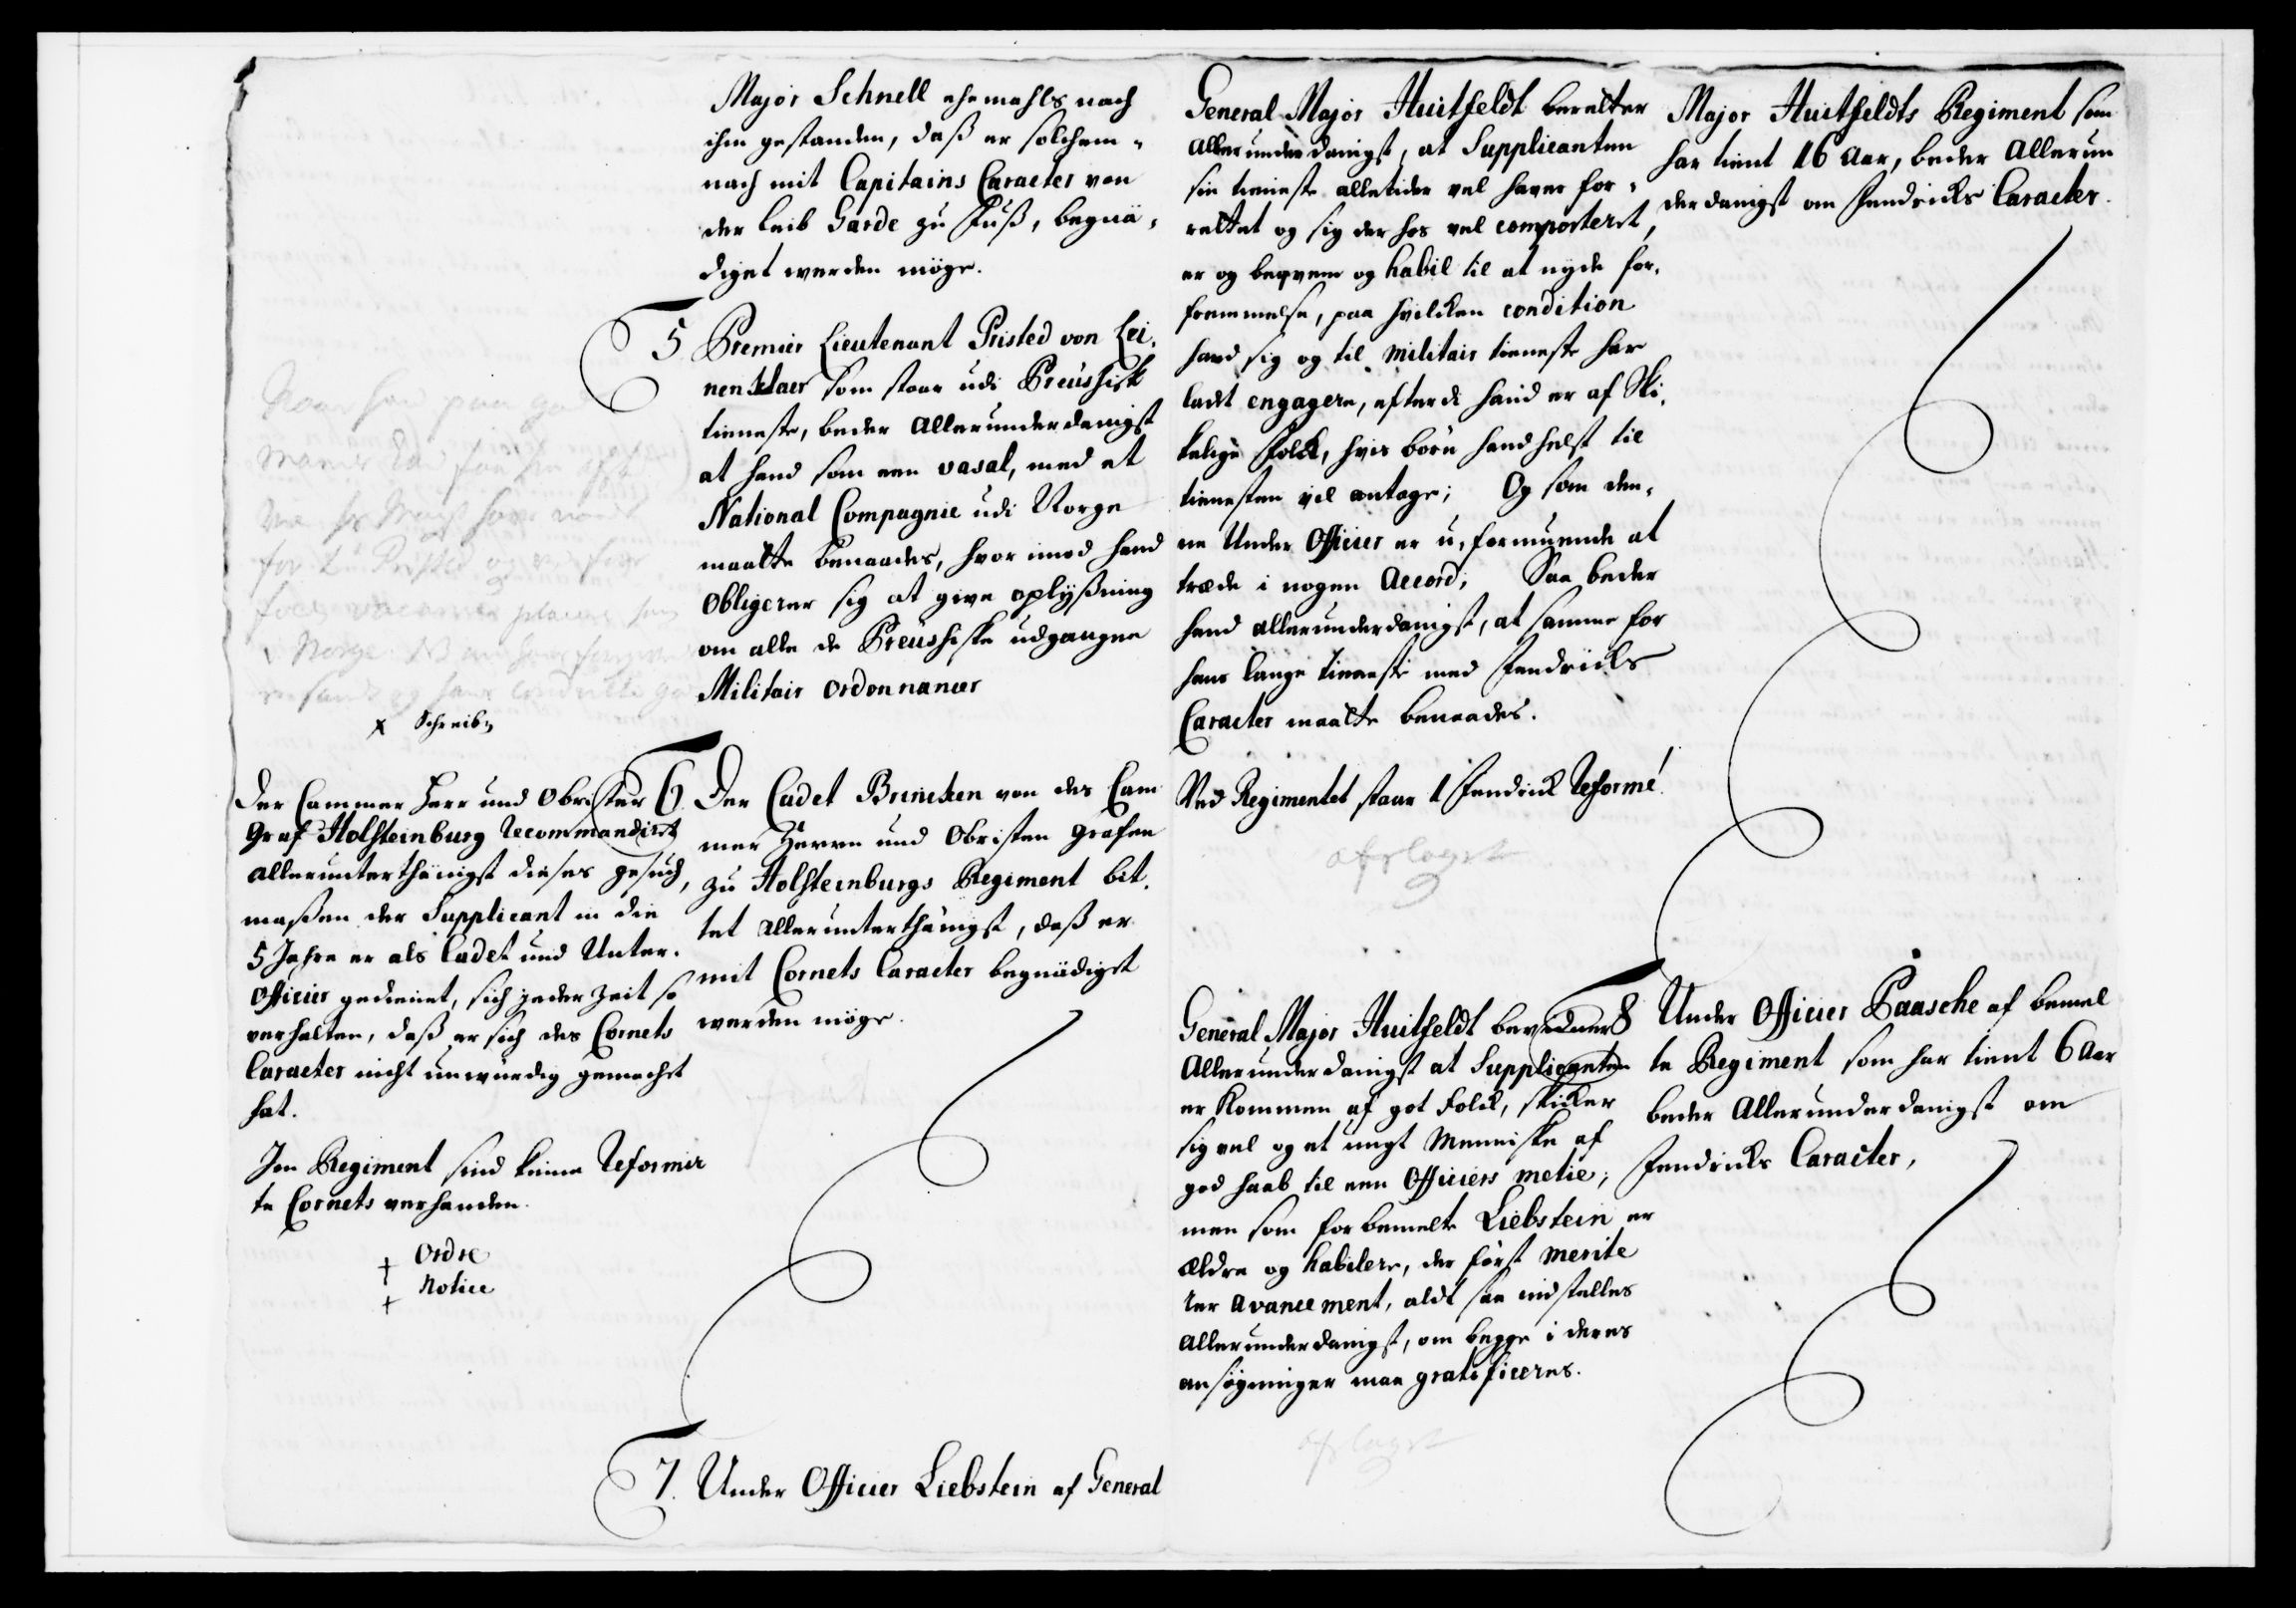 Major Schnell ehemahls nach
ihm gestanden, daß er solchem-
nach mit Capitains Caracter von
der Leib Garde zu Fuß, begnä-
diget werden möge.
5 Premier Lieutenant Pristed von Lei-
nenklaer som staar udi Preussisk
tieneste, beder Allerunderdanigst
at hand som een vasal, med et
National Compagnie udi Norge
maatte benaades, hvor imod hand
Obligerer sig at give oplyßning
om alle de Preussiske udgangne
Militair ordonnancer
for Lt: Pristed og
i Norge
x Schreib
Der Cammer Herr und Obrister
Graf Holsteinburg recommandiret
allerunterthänigst dieses gesuch,
maßen der Supplicant in die
5 Jahre er als Cadet und Unter-
Officier gedienet, sich jeder Zeit so
verhalten, daß er sich des Cornets
Caracter nicht unwürdig gemacht
hat.
Im Regiment sind keine Reformir
te Cornets verhanden.
+ Ordre
+ Notice
6. Der Cadet Brincken von des Cam
mer Herrn und Obristen Grafen
zu Holsteinburgs Regiment bit-
tet allerunterthänigst, daß er
mit Cornets Caracter begnädiget
werden möge.
7. Under Officier Liebstein af General
Major Huitfeldts Regiment som
har tient 16 Aar, beder Allerun
derdanigst om Fendricks Caracter.
General Major Huitfeldt beretter
Allerunderdanigst, at Supplicanten
sin tieniste alletider vel haver for-
rettet og sig der hos vel comporteret,
er og beqvem og habil til at nyde for-
fremmelse, paa hvilcken condition
hand sig og til Militair tieneste har
ladt engagere, efterdi hand er af Ski-
kelige Folck, hvis børn hand helst til
tienesten vil antage; Og som den-
ne Under Officier er u-formuende at
træde i nogen Accord; Saa beder
hand allerunderdanigst, at samme for
hans lange tieneste med Fendricks
Caracter maatte benaades.
Ved Regimentet staar 1 Fendrick Reformé
afslaget
8 Under Officier Paasche af bemel
te Regiment som har tient 6 Aar
beder Allerunderdanigst om
Fendricks Caracter,
General Major Huitfeldt bevidner
Allerunderdanigst at Supplicanten
er kommen af got Folck, skicker
sig vel og et ungt Menniske af
god haab til een Officiers metie;
men som forbemelte Liebstein er
ældre og habilere, der først merite
rer Avancement, aldt saa indstilles
Allerunderdanigst, om begge i deres
ansøgninger maa gratificeres.
afslaget